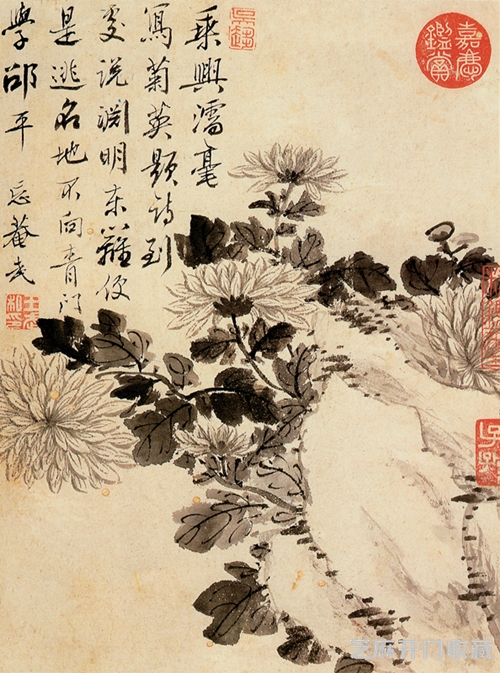 乘興濡毫
寫菊英題詩到
處說淵明東籬便
是逃名地不向青门
學邵平 忘菴武
嘉慶
鑑賞
芝麻开门收藏